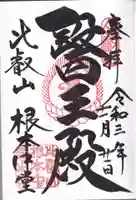 奉拝
令和三年
二月廿日
醫王殿
比叡山
根本中堂